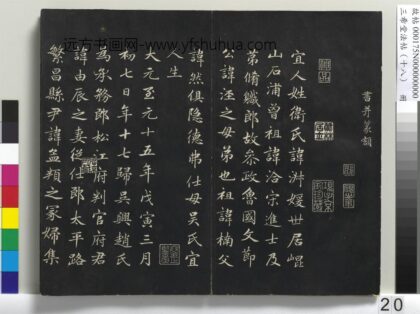 书并篆额
宜人姓衛氏諱淑媛世居崐
山石浦曾祖諱洽宋進士及
第脩職郎故叅政魯國文節
公諱涇之母弟也祖諱楠父
諱然俱隐德弗仕母吴氏宜
人生
大元至元十五年戊寅三月
初七日年十七歸吴興趙氏
為承務郎松江府判官府君
諱由辰之妻從仕郎太平路
繁昌縣尹諱孟頖之冢婦集
远方书画网-www.yfshuhua.com
故帖 000175N000000000
三希堂法帖(十八) 冊
20